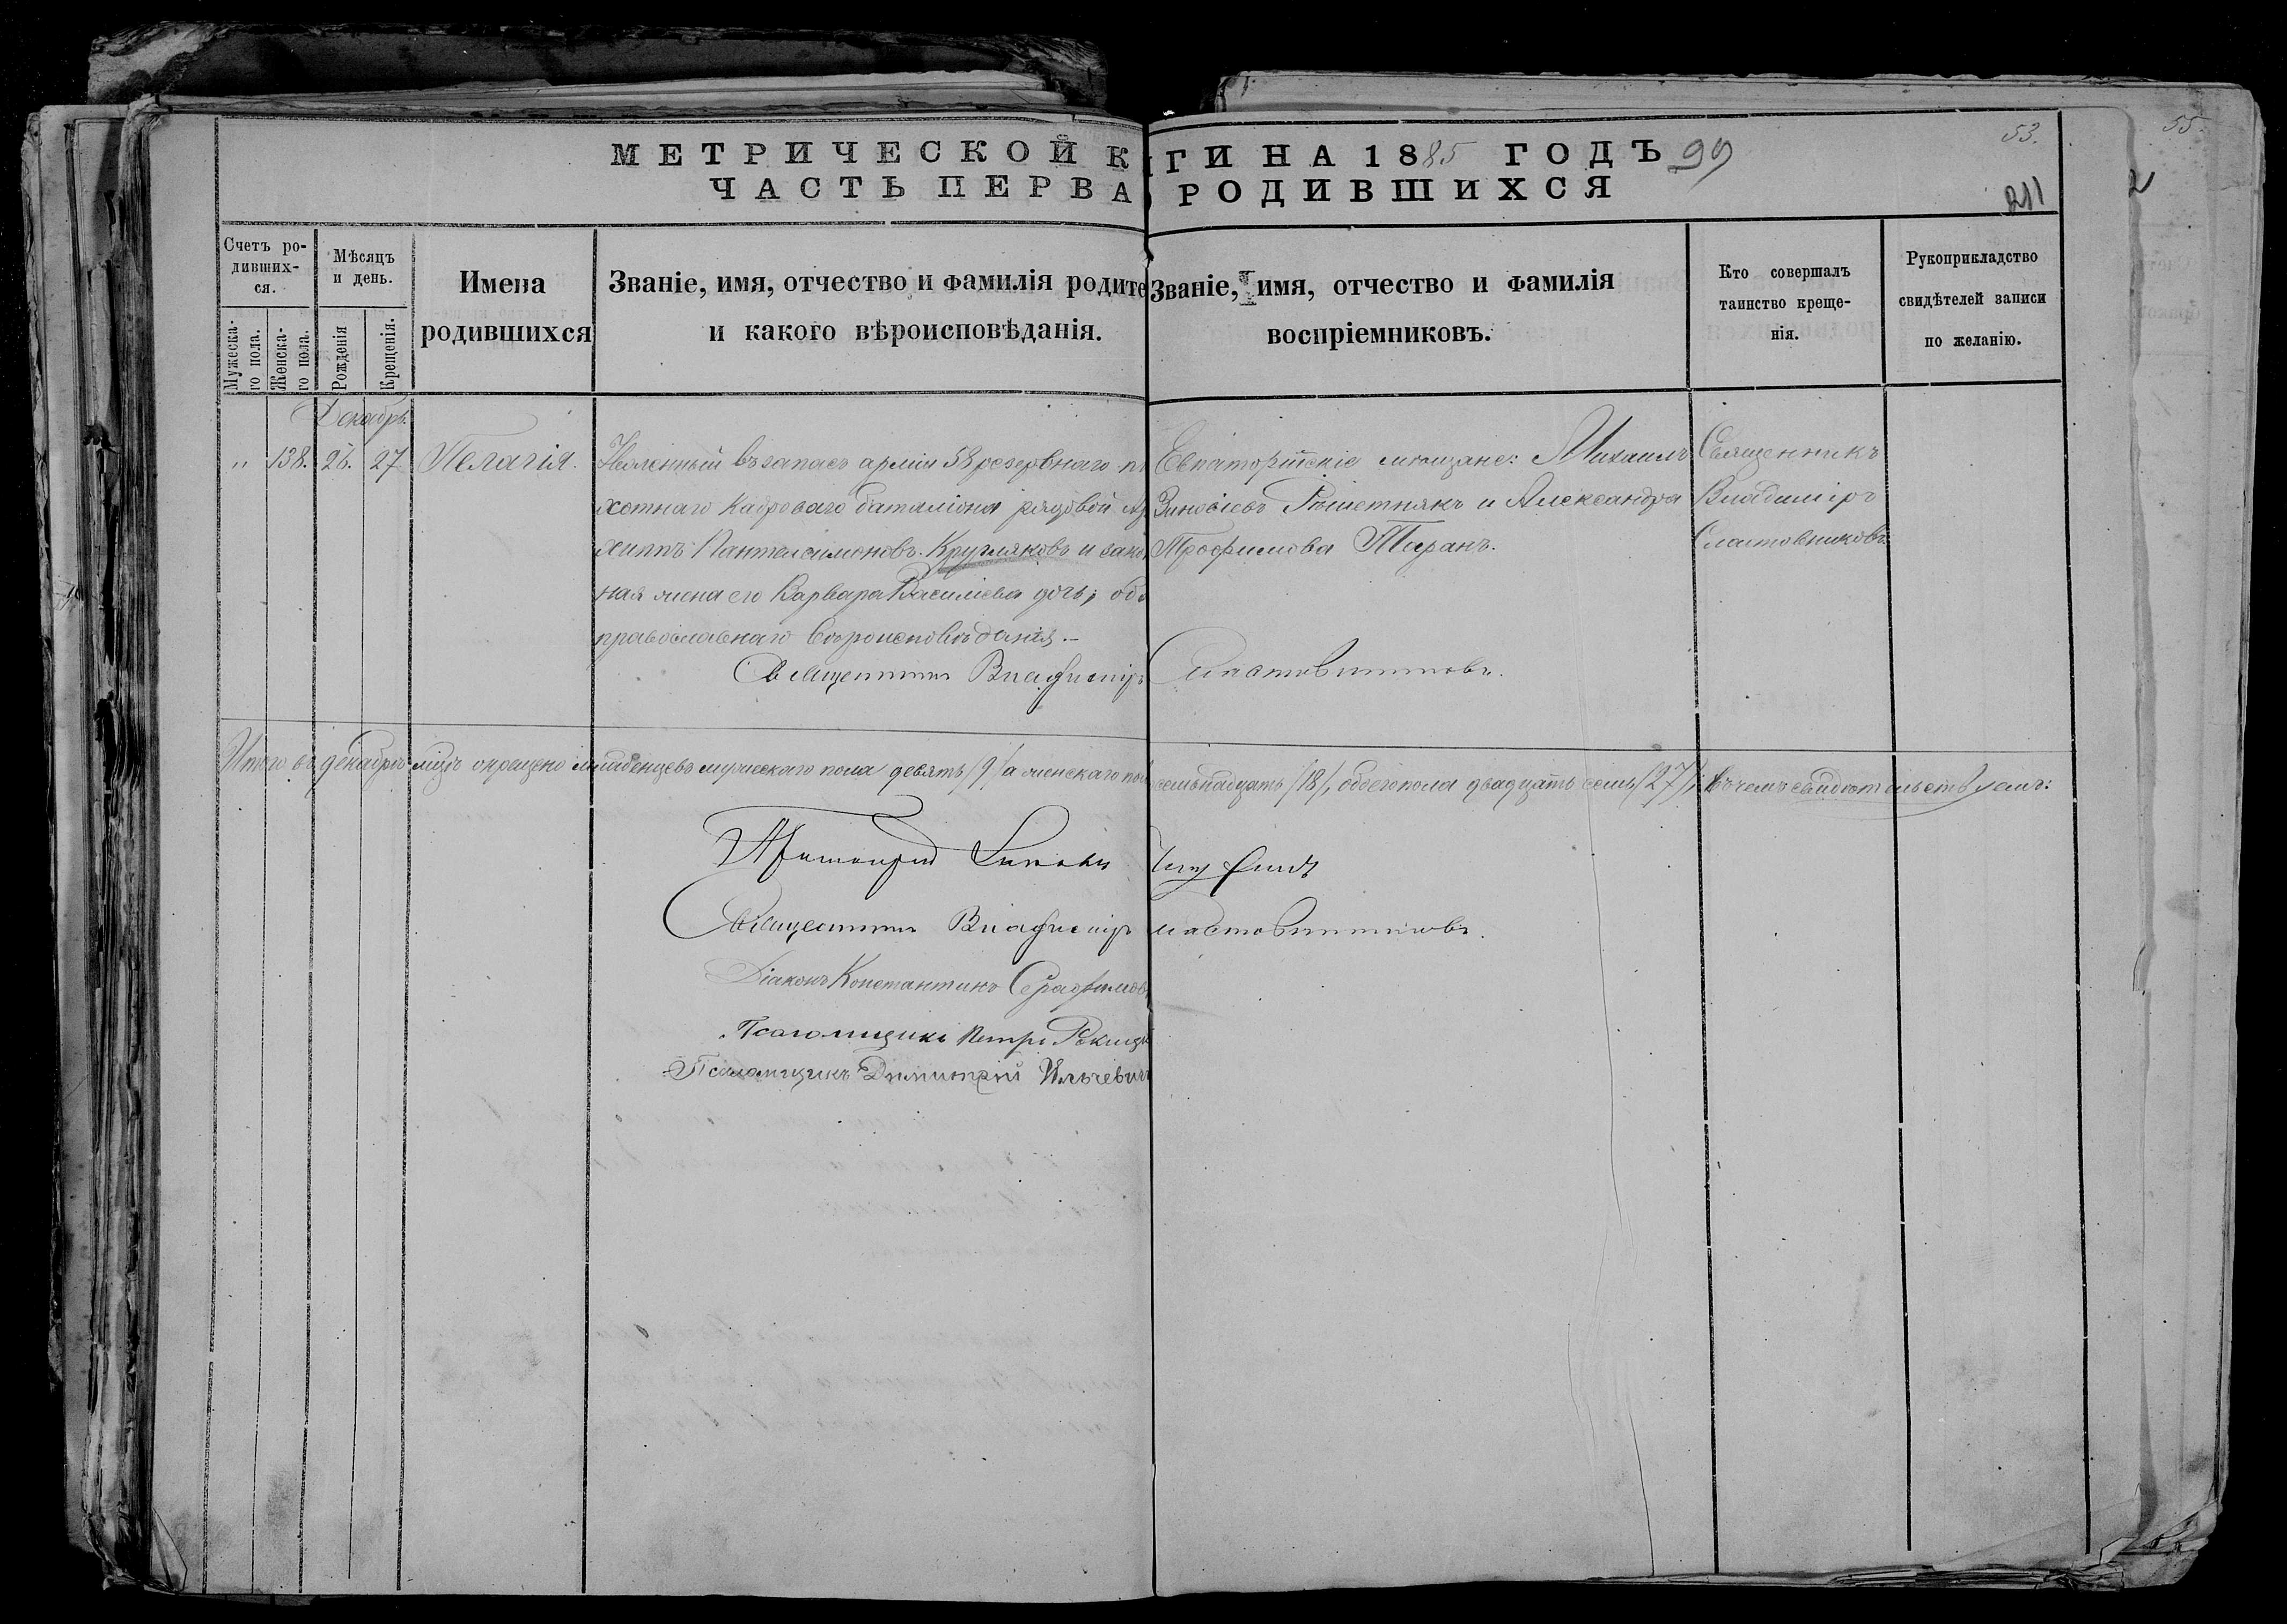 МЕТРИЧЕСКОЙ К ГИ НА 1885 ГОДЪ 99
53.
55.
ЧАСТЬ ПЕРВА РОДИВШИХСЯ
211
2
Счетъ ро-
дивших-
ся.
Мужеска-
го пола.
Женска-
го пола.
Мѣсяцъ
и день.
Рожденія
Крещенія.
Имена
родившихся
Званіе, имя, отчество и фамилія родите
и какого вѣроисповѣданія.
Званіе, имя, отчество и фамилія
воспріемниковъ.
Кто совершалъ
таинство креще-
нія.
Рукоприкладство
свидѣтелей записи
по желанію.
Декабрь.
„ 138. 26. 27 Пелагія.
Уволенный въ запасъ арміи 58 резервнаго п
хотнаго кадроваго баталіона рядовой Ар
хиппъ Пантелеимоновъ Кругляковъ и зако
ная жена его Варвара Василіева дочь; обо
православнаго вѣроисповѣданія.–
Евпаторійскіе мѣщане: Михаилъ
Зиновіевъ Рѣшетнякъ и Александра
Трофимова Таранъ.
Священникъ
Владиміръ
Сластовниковъ
Священникъ Владиміръ Сластовниковъ.
Итого въ декабрѣ м-цѣ окрещено младенцевъ мужескаго пола девять /9/ а женскаго по семьнадцать /18/, обоего пола двадцать семь /27/; въ чемъ свидѣтельствуемъ:
Протоіерей
Священникъ Владиміръ ластовниковъ.
Діаконъ Константинъ Серафимов
Псаломщикъ Петръ
Псаломщикъ Димитрій Ильчевич